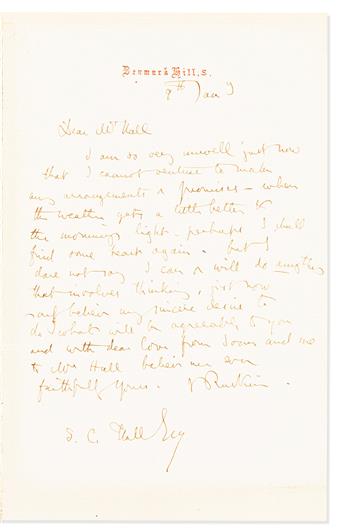 Denmark Hill, S.
9th Jan
Dear Mr Hall
I am so very unwell just now
that I cannot venture to make
any arrangements or promises - when
the weather gets a little better &
the mornings light - perhaps I shall
find some heart again. But I
dare not say I can or will do anything
that involves thinking, just now
only believe my sincere desire to
do what will be agreeable to you
and with dear love from and me
to Mrs Hall believe me ever
faithfully yours. J Ruskin.
S. C. Hall Esq